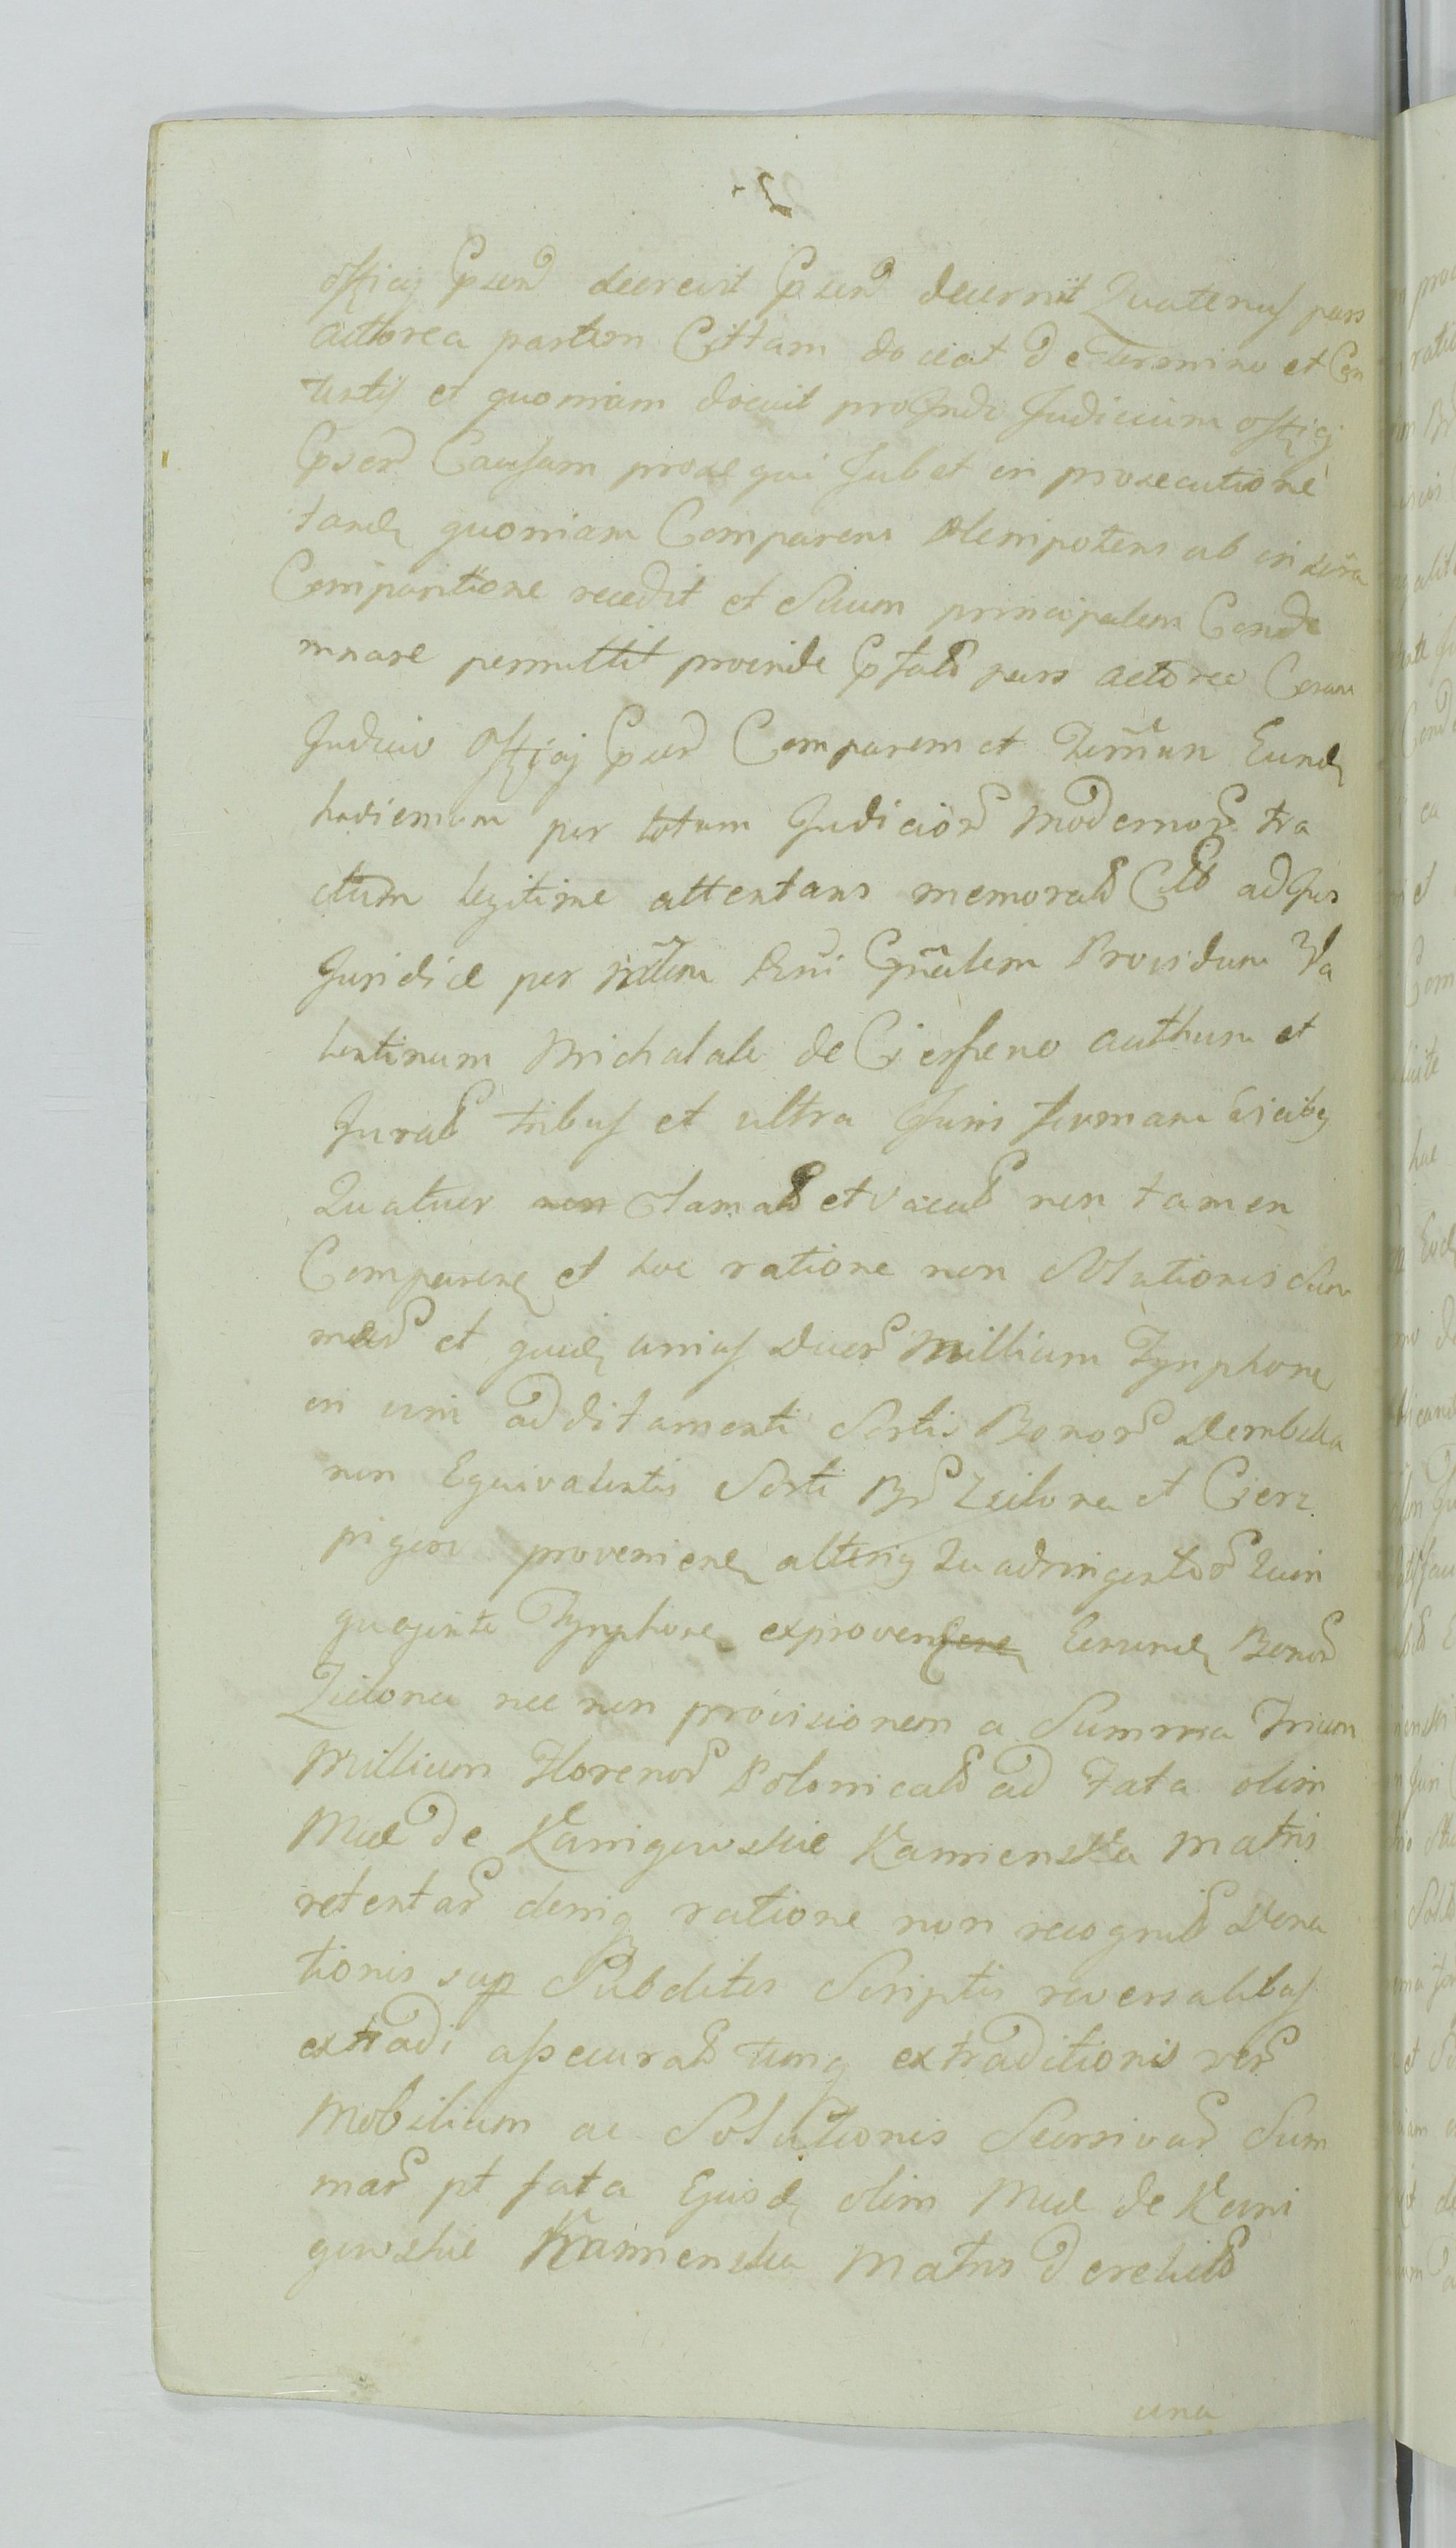 2
officij Cpsend decrevit Cpsend decernit Quatenus pars
actorea partem Cittam doceat de Termino et Con
tentis et quoniam docuit proinde Judicium officij
Cpsend Causam prosequi Jubet in prosecutione
tandem quoniam Comparens plenipotens ab
Comparitione recedit et Suum principalem Conde
mnare permittit proinde pars actorea Coram
Judicio Officij Cpsend Comparem et Terminum Eund
hodiernum per totum Judicior modernor tra
ctum legitime attentans memorat Citt ad Jus
Juridice per Mrlem Rni Gnralem Providum Va
lentinum Michalak de Cierpieno authum et
Jurat tribus et ultra Juris formam vicibq
Quatuor non Clamat et vocat non tamen
Comparen et hoc ratione non Solutionis Sum
mar et quid unius Duor Millium Tynphon
in vim additamenti Sortis Bonor Dembska
non Equivalentis Sorti Br Zielona et Cierz
pigorz provenien alteriq Quadringentor Quin
quaginta Tynphon ex provenien Eorund Bonor
Zielona nec non provisionem a Summa Trium
Millium Florenor Polonical ad Fata olim
Mael de Kanigowskie Kamienska Matris
retentar deniq ratione non recognit Dona
tionis sup Subditis Scriptis reversalibus
extradi assecurat tumq extraditionis rer
Mobilium ac Solutionis Summar Sum
mar pt fata Ejusd olim Mael de Kani
gowskie Kamienska Matris derelict
una